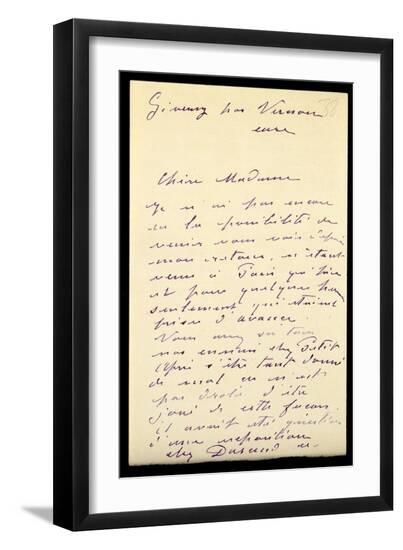 Giverny par Vernon 38
eure
Chère Madame
Je n'ai pas encore
eu la possibilité de
venir vous voir depuis
mon retour, n'étant
venu à Paris qu'hier
et pour quelques
seulement qui étaient
prises d'avance.
Vous avez su tous
nos ennuis chez Petit
après s'être tant donné
de mal ce n'est
pas drôle d'être
joué de cette façon.
il avait été question
d'une exposition
chez Durand